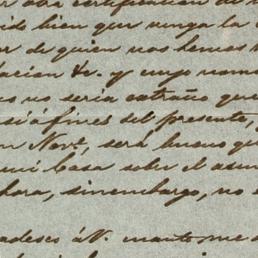 r otra certificacion de
ido bien que venga la
or de quien nos hemos
lacion &c. y cuyo nom
os no seria extraño que
si á fines del presente,
en Nove, será bueno qu
mi Casa sobre el asun
hora, sinembargo, no
adesco á V. cuanto me